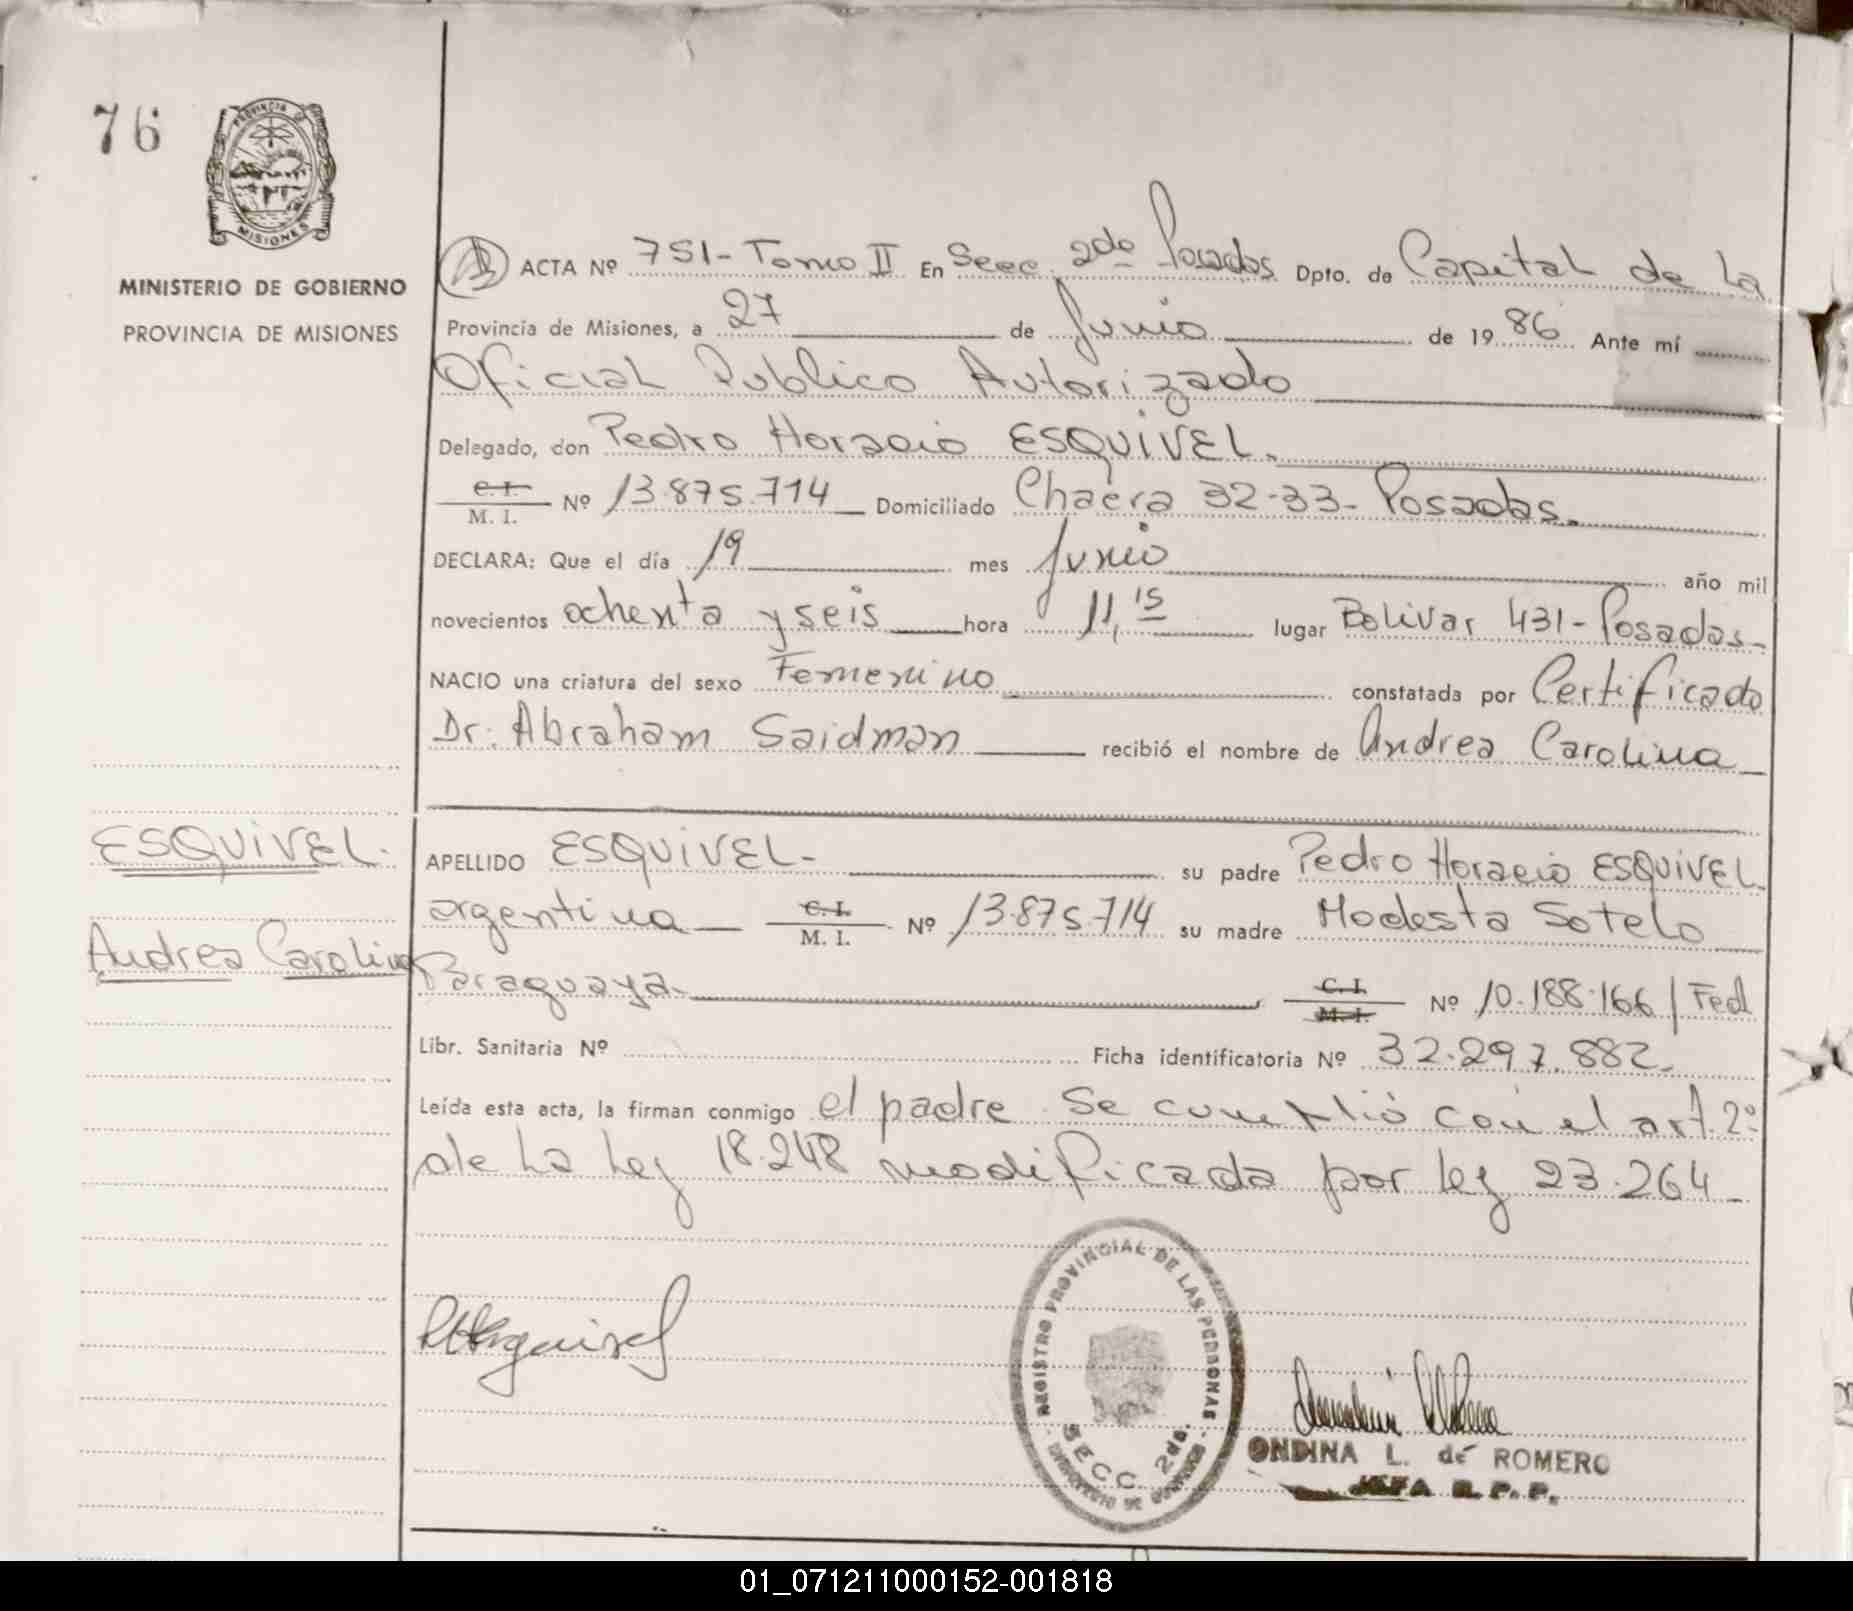 76
PROVINCIA DE
MISIONES
MINISTERIO DE GOBIERNO
PROVINCIA DE MISIONES
ACTA Nº 751 - Tomo II En Secc 2da Posadas Dpto. de Capital de la
Provincia de Misiones, a 27 de Junio de 19 86 Ante mí
Oficial Publico Autorizado
Delegado, don Pedro Horacio ESQUIVEL.
C. I.
M. I. Nº 13.875.714 Domiciliado Chacra 32-33- Posadas.
DECLARA: Que el día 19 mes Junio año mil
novecientos ochenta y seis hora 11,15 lugar Bolivar 431- Posadas-
NACIO una criatura del sexo Femenino constatada por Certificado
Dr. Abraham Saidman recibió el nombre de Andrea Carolina
ESQUIVEL.
Andrea Carolina
APELLIDO ESQUIVEL- su padre Pedro Horacio ESQUIVEL
argentina C. I.
M. I. Nº 13.875.714 su madre Modesta Sotelo
Paraguaya C. I.
M. I. Nº 10.188.166/Fed
Libr. Sanitaria Nº Ficha identificatoria Nº 32.297.882-
Leída esta acta, la firman conmigo el padre. Se cumplió con el art. 2º
de la Ley 18.248 modificada por ley 23.264-
REGISTRO PROVINCIAL DE LAS PERSONAS
SECC. 2da.
ONDINA L. de ROMERO
JEFA R. P. P.
01_071211000152-001818